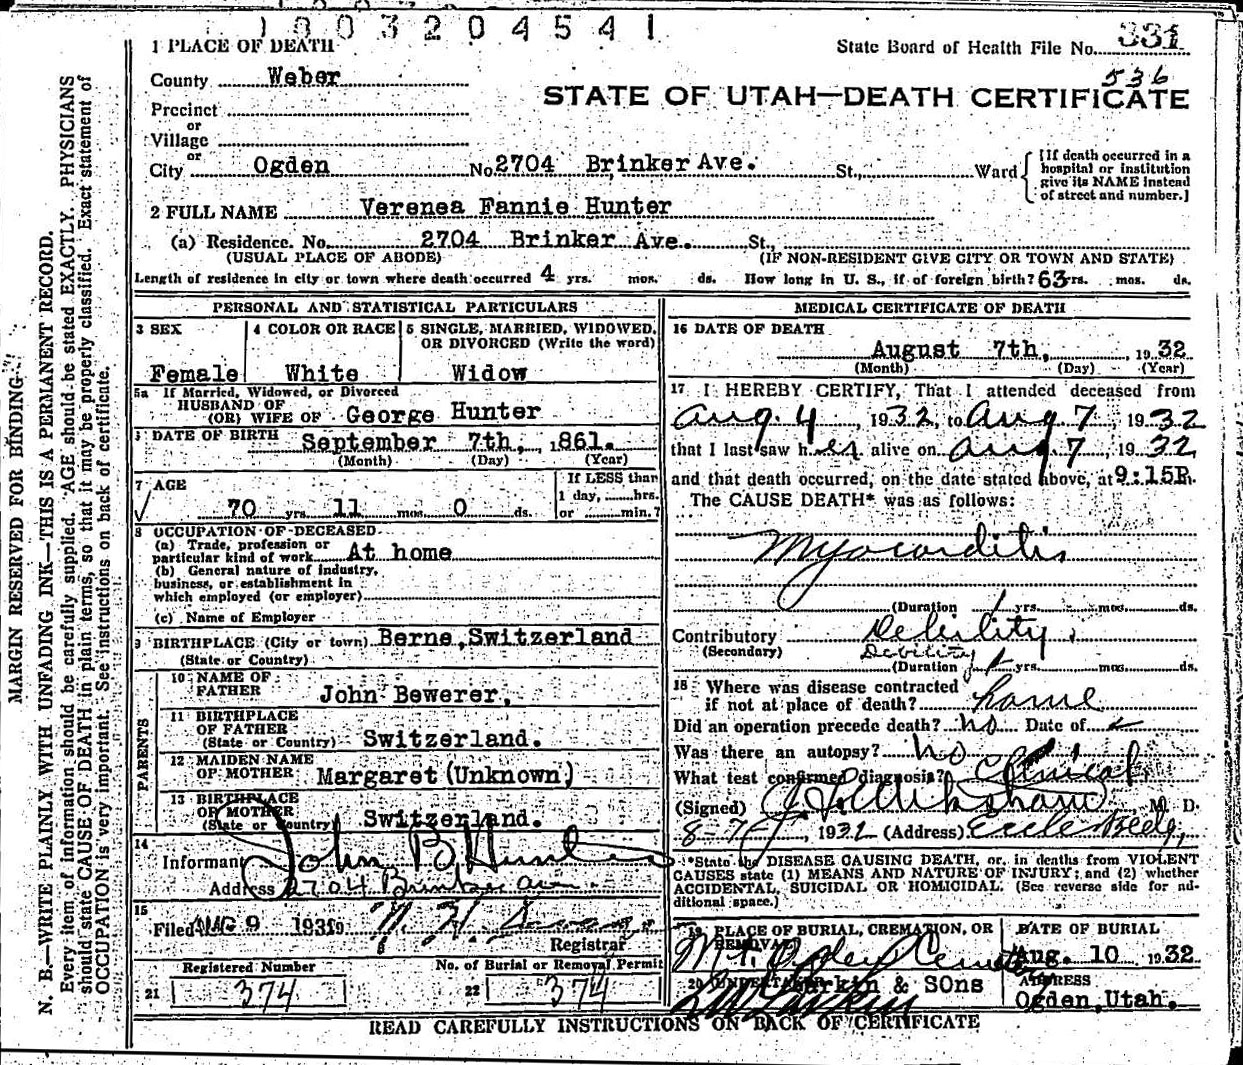 1803204541
1 PLACE OF DEATH
State Board of Health File No. 331
County Weber
536
STATE OF UTAH—DEATH CERTIFICATE
Precinct
or
Village
or
City Ogden No. 2704 Brinker Ave. St., Ward
[If death occurred in a hospital or institution give its NAME instead of street and number.]
2 FULL NAME Verenea Fannie Hunter
(a) Residence. No. 2704 Brinker Ave. St.,
(USUAL PLACE OF ABODE) (IF NON-RESIDENT GIVE CITY OR TOWN AND STATE)
Length of residence in city or town where death occurred 4 yrs. mos. ds. How long in U. S., if of foreign birth? 63 yrs. mos. ds.
PERSONAL AND STATISTICAL PARTICULARS
3 SEX
Female
4 COLOR OR RACE
White
5 SINGLE, MARRIED, WIDOWED,
OR DIVORCED (Write the word)
Widow
5a If Married, Widowed, or Divorced
HUSBAND OF
(OR) WIFE OF George Hunter
DATE OF BIRTH September 7th, 1861.
(Month) (Day) (Year)
7 AGE
70 yrs. 11 mos. 0 ds.
If LESS than
1 day, hrs.
or min.?
8 OCCUPATION OF DECEASED
(a) Trade, profession or
particular kind of work At home
(b) General nature of industry,
business, or establishment in
which employed (or employer)
(c) Name of Employer
9 BIRTHPLACE (City or town) Berne, Switzerland
(State or Country)
PARENTS
10 NAME OF
FATHER John Bewerer,
11 BIRTHPLACE
OF FATHER
(State or Country) Switzerland.
12 MAIDEN NAME
OF MOTHER Margaret (Unknown)
13 BIRTHPLACE
OF MOTHER
(State or Country) Switzerland.
14
Informant John B. Hunter
Address 2704 Brinker Ave.
15
Filed AUG 9 1932
Registrar
Registered Number
21 374
No. of Burial or Removal Permit
22 374
MEDICAL CERTIFICATE OF DEATH
16 DATE OF DEATH
August 7th, 1932
(Month) (Day) (Year)
17 I HEREBY CERTIFY, That I attended deceased from
Aug. 4, 1932, to Aug 7, 1932
that I last saw her alive on Aug. 7, 1932
and that death occurred, on the date stated above, at 9:15P.m.
The CAUSE DEATH* was as follows:
Myocarditis
(Duration 1 yrs. mos. ds.
Contributory Debility.
(Secondary) Debility
(Duration 1 yrs. mos. ds.
18 Where was disease contracted
if not at place of death? home
Did an operation precede death? no Date of
Was there an autopsy? no
What test confirmed diagnosis? Clinical
(Signed) M. D.
8-7-, 1932 (Address) Eccles Bldg,
*State the DISEASE CAUSING DEATH, or, in deaths from VIOLENT
CAUSES state (1) MEANS AND NATURE OF INJURY; and (2) whether
ACCIDENTAL, SUICIDAL OR HOMICIDAL. (See reverse side for additional space.)
19 PLACE OF BURIAL, CREMATION, OR
REMOVAL
Mt. Ogden Cemetery
DATE OF BURIAL
Aug. 10 1932
20 UNDERTAKER
Larkin & SOns
ADDRESS
Ogden, Utah.
READ CAREFULLY INSTRUCTIONS ON BACK OF CERTIFICATE
MARGIN RESERVED FOR BINDING
N. B.—WRITE PLAINLY WITH UNFADING INK—THIS IS A PERMANENT RECORD.
Every item of information should be carefully supplied. AGE should be stated EXACTLY. PHYSICIANS
should state CAUSE OF DEATH in plain terms, so that it may be properly classified. Exact statement of
OCCUPATION is very important. See instructions on back of certificate.